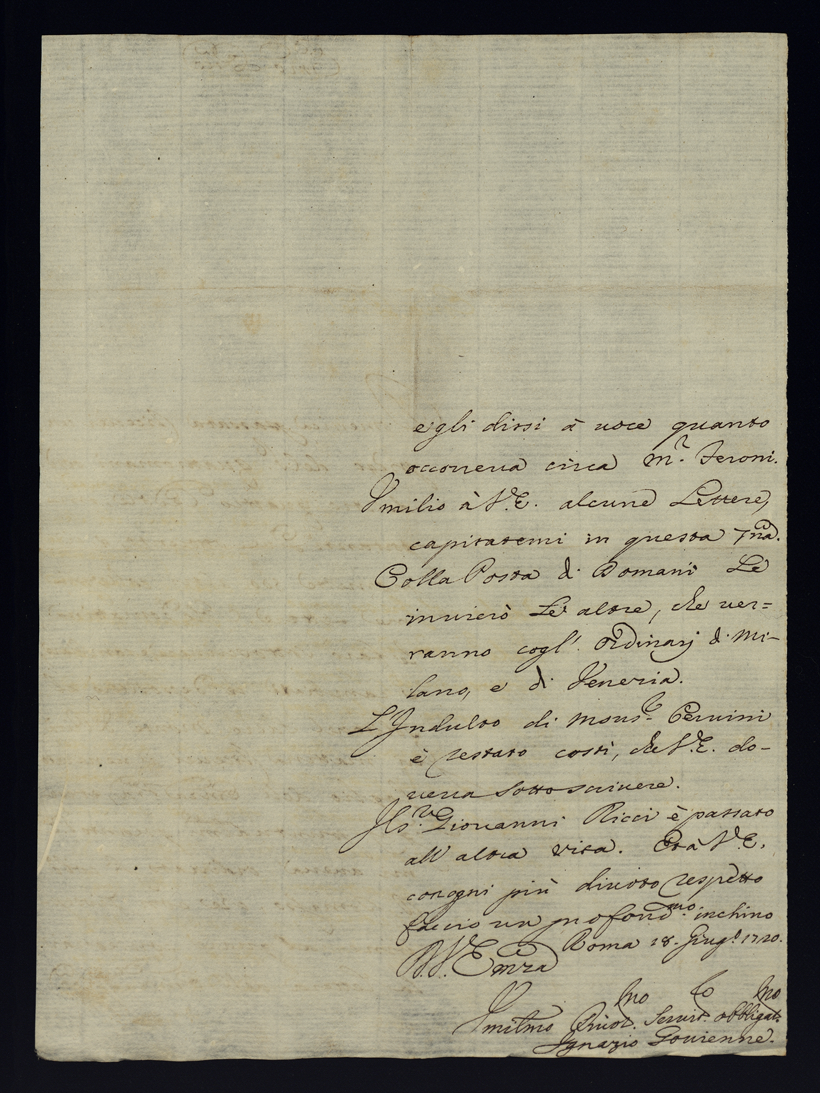 egli dirsi à uoce quanto
occorreua circa M.r Feroni.
Vmilio à V.E. alcune Lettere,
capitatemi in questa
Colla Posta di Domani Le
inuierò Le altre, che uer=
ranno cogl'. Ordinarj di Mi-
lano, e di Venezia.
L'Indulto di Mons.r Ceruini
è restato costì, che V.E. do-
ueua sottoscriuere.
Il S.r Giouanni Ricci è passato
all'altra vita. Et à V.E.
con ogni più diuoto rispetto
faccio un profond.mo inchino
D. V. Emza Roma 18. Giug.o 1720.
mo to mo
Vmilmo Diuot. Seruit. obbligat.
Ignazio Gouienne.